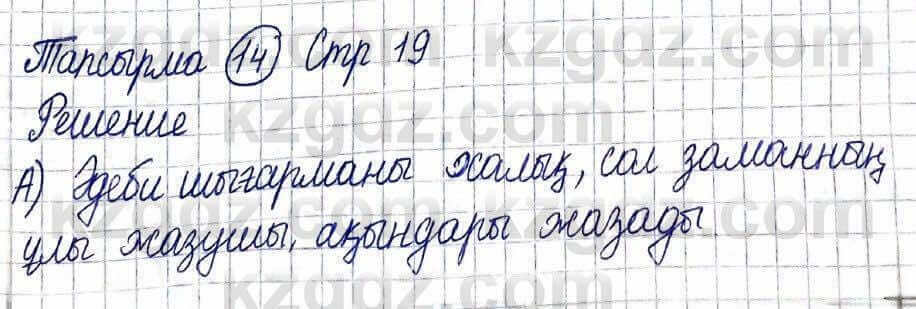 Тапсырма 14 Стр 19
Решение
А) Әдеби шығарманы халық, сол заманның
ұлы жазушы, ақындары жазады
kzgdz.com